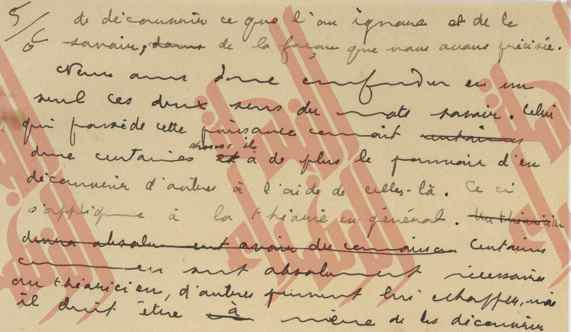 5/6 de découvrir ce que l'on ignore et de le
savoir, dans de la façon que nous avons précisée.
Nous ons donc confondu en un
seul ces deux sens du mot savoir. Celui
qui possède cette puissance connait certaines
donc certaines choses et il a de plus le pouvoir d'en
découvrir d'autres à l'aide de celles-là. Ce ci
s'applique à la théorie en général. Un théoricien
devra absolument avoir des connaissances Certaines
connaissances sont absolument nécessaires
au théoricien, d'autres peuvent lui échapper, mais
il doit être à même de les découvrir